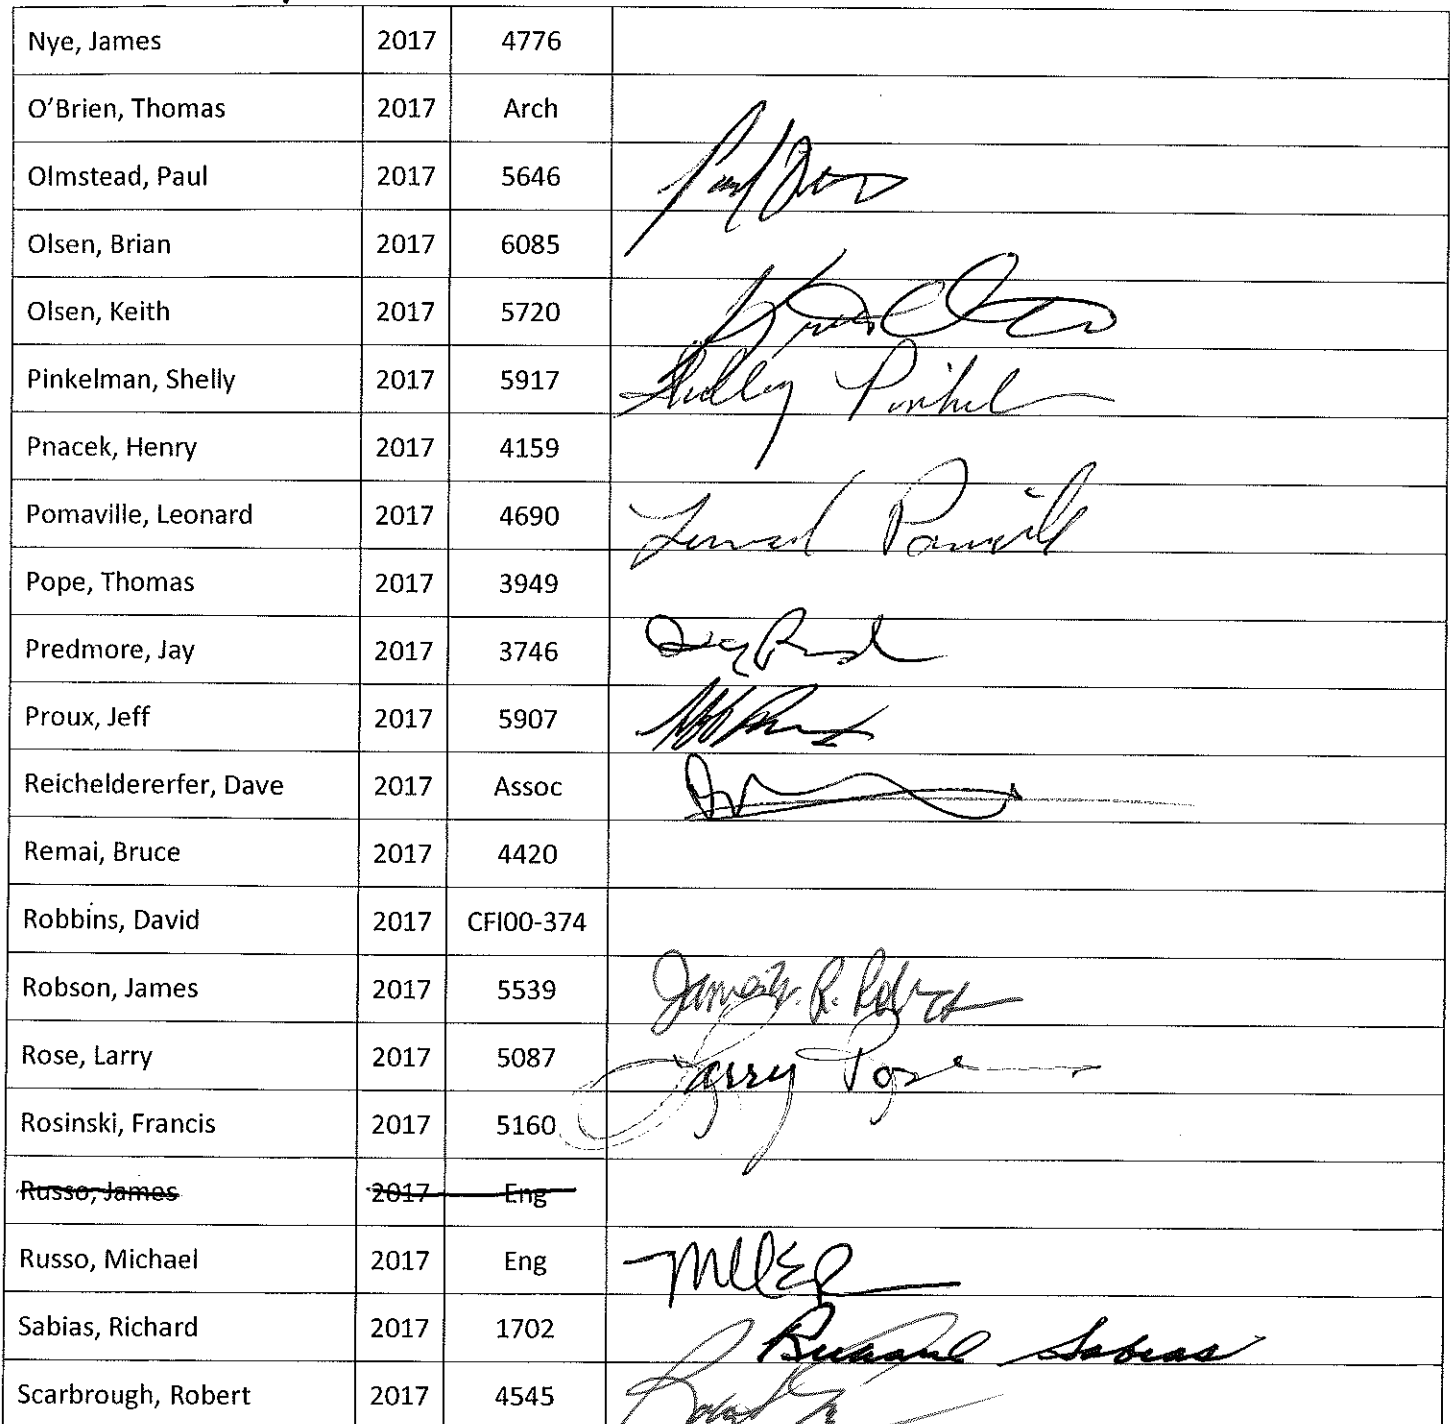 Nye, James 2017 4776
O'Brien, Thomas 2017 Arch
Olmstead, Paul 2017 5646
Olsen, Brian 2017 6085
Olsen, Keith 2017 5720
Pinkelman, Shelly 2017 5917 Shelley
Pnacek, Henry 2017 4159
Pomaville, Leonard 2017 4690
Pope, Thomas 2017 3949
Predmore, Jay 2017 3746
Proux, Jeff 2017 5907
Reicheldererfer, Dave 2017 Assoc
Remai, Bruce 2017 4420
Robbins, David 2017 CFI00-374
Robson, James 2017 5539
Rose, Larry 2017 5087 Larry Rose
Rosinski, Francis 2017 5160
Russo, James 2017 Eng
Russo, Michael 2017 Eng
Sabias, Richard 2017 1702 Richard Sabias
Scarbrough, Robert 2017 4545 Robert